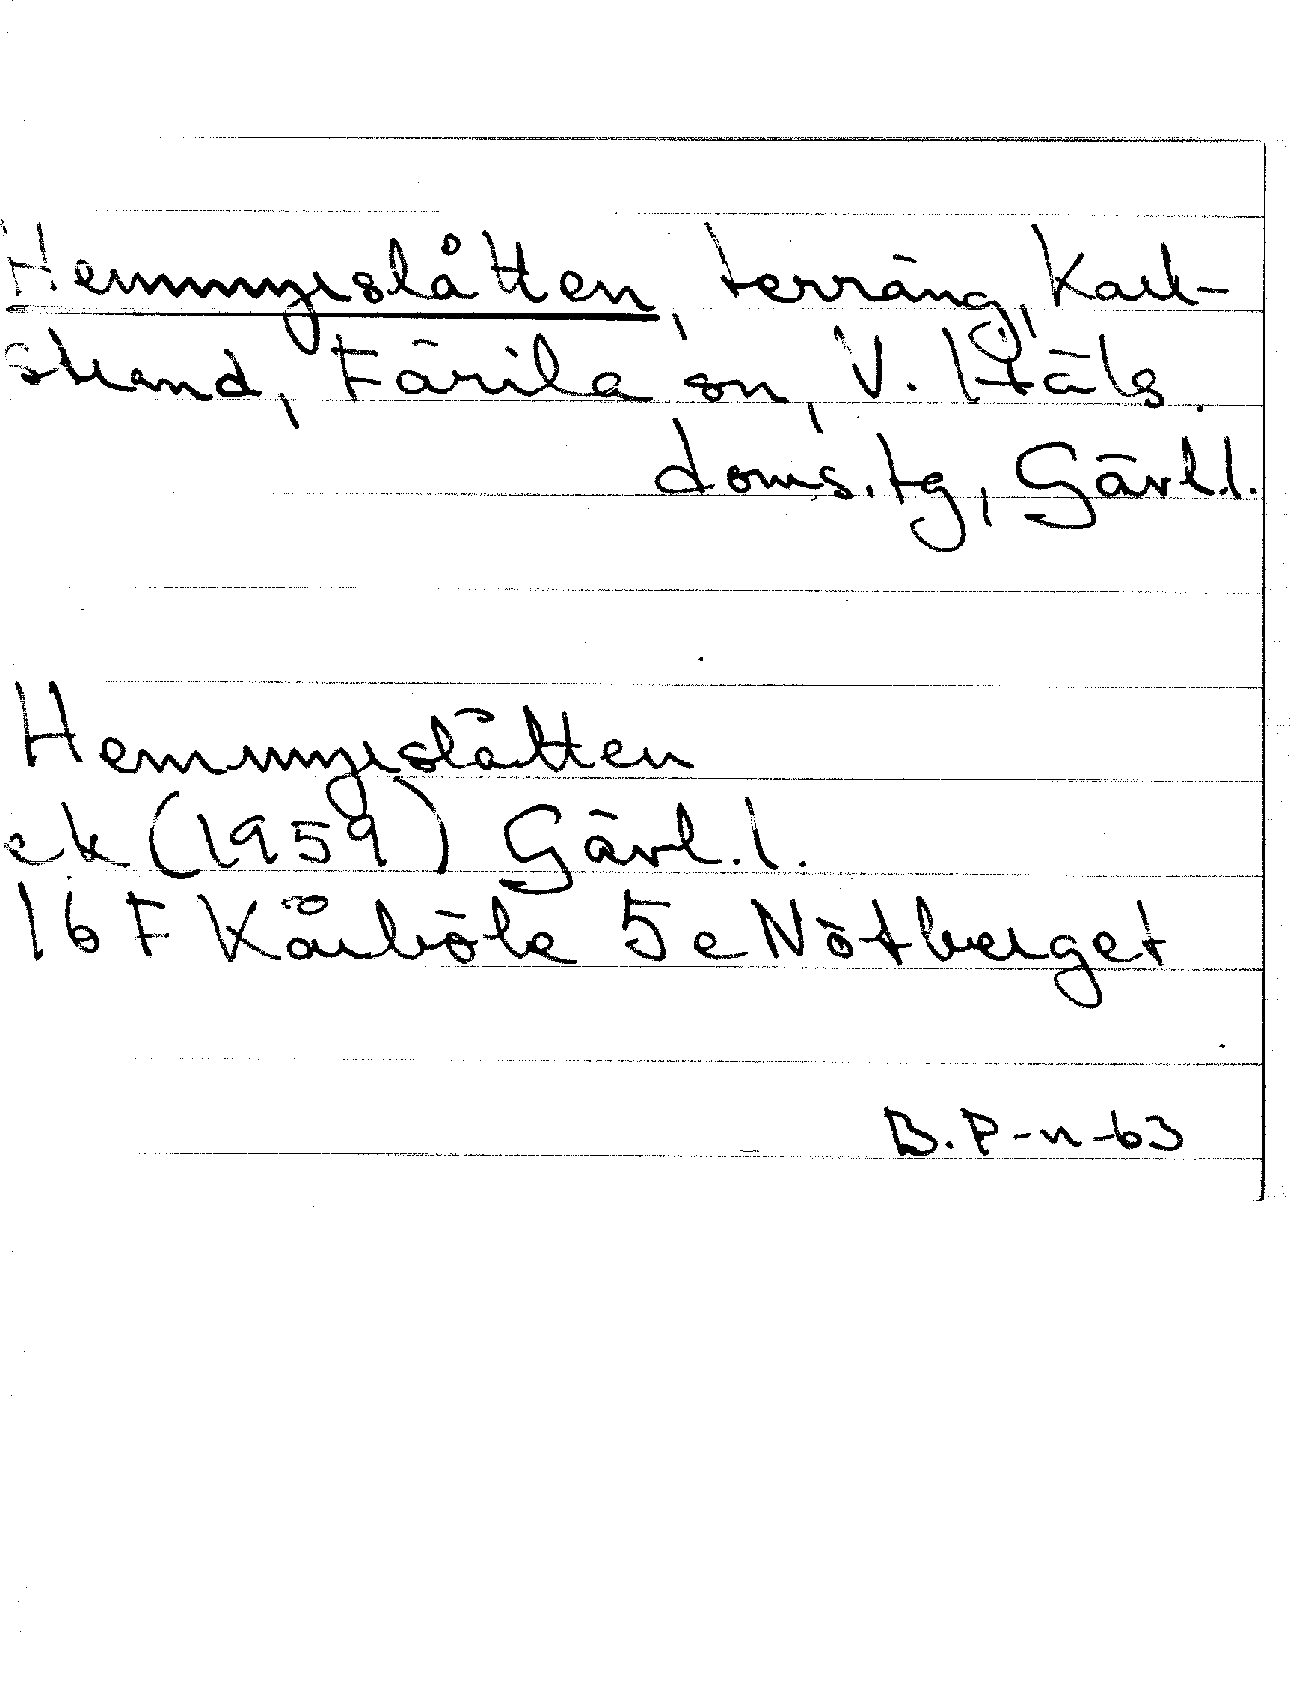 Hemmyrslåtten, terräng, Karl-
strand, Färila sn, V. Häls.
doms.tg, Gävl.l.
Hemmyrslåtten
ek (1959) Gävl.l.
16 F Kårböle 5 e Nötberget
B.P-n-63